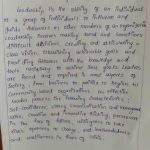 Leadership is the ability of an individual
or a group of individuals to influence and
guide followers or other members of an organization
Leadership involves making sound and sometimes
difficult decisions, creating and articulating a
clear vision, establishing achievable goals and
providing followers with the knowledge and
tools necessary to achieve those goals. Leaders
are found and required in most aspects of
society, from business to politics to region to
community based organizations. An effective
leader possess the following characteristics:
self confidence, strong communication and management
skills, creative and innovative thinking, perseverance
in the face of failure, willingness to take
risks, openness to change and
and in times of crisis.